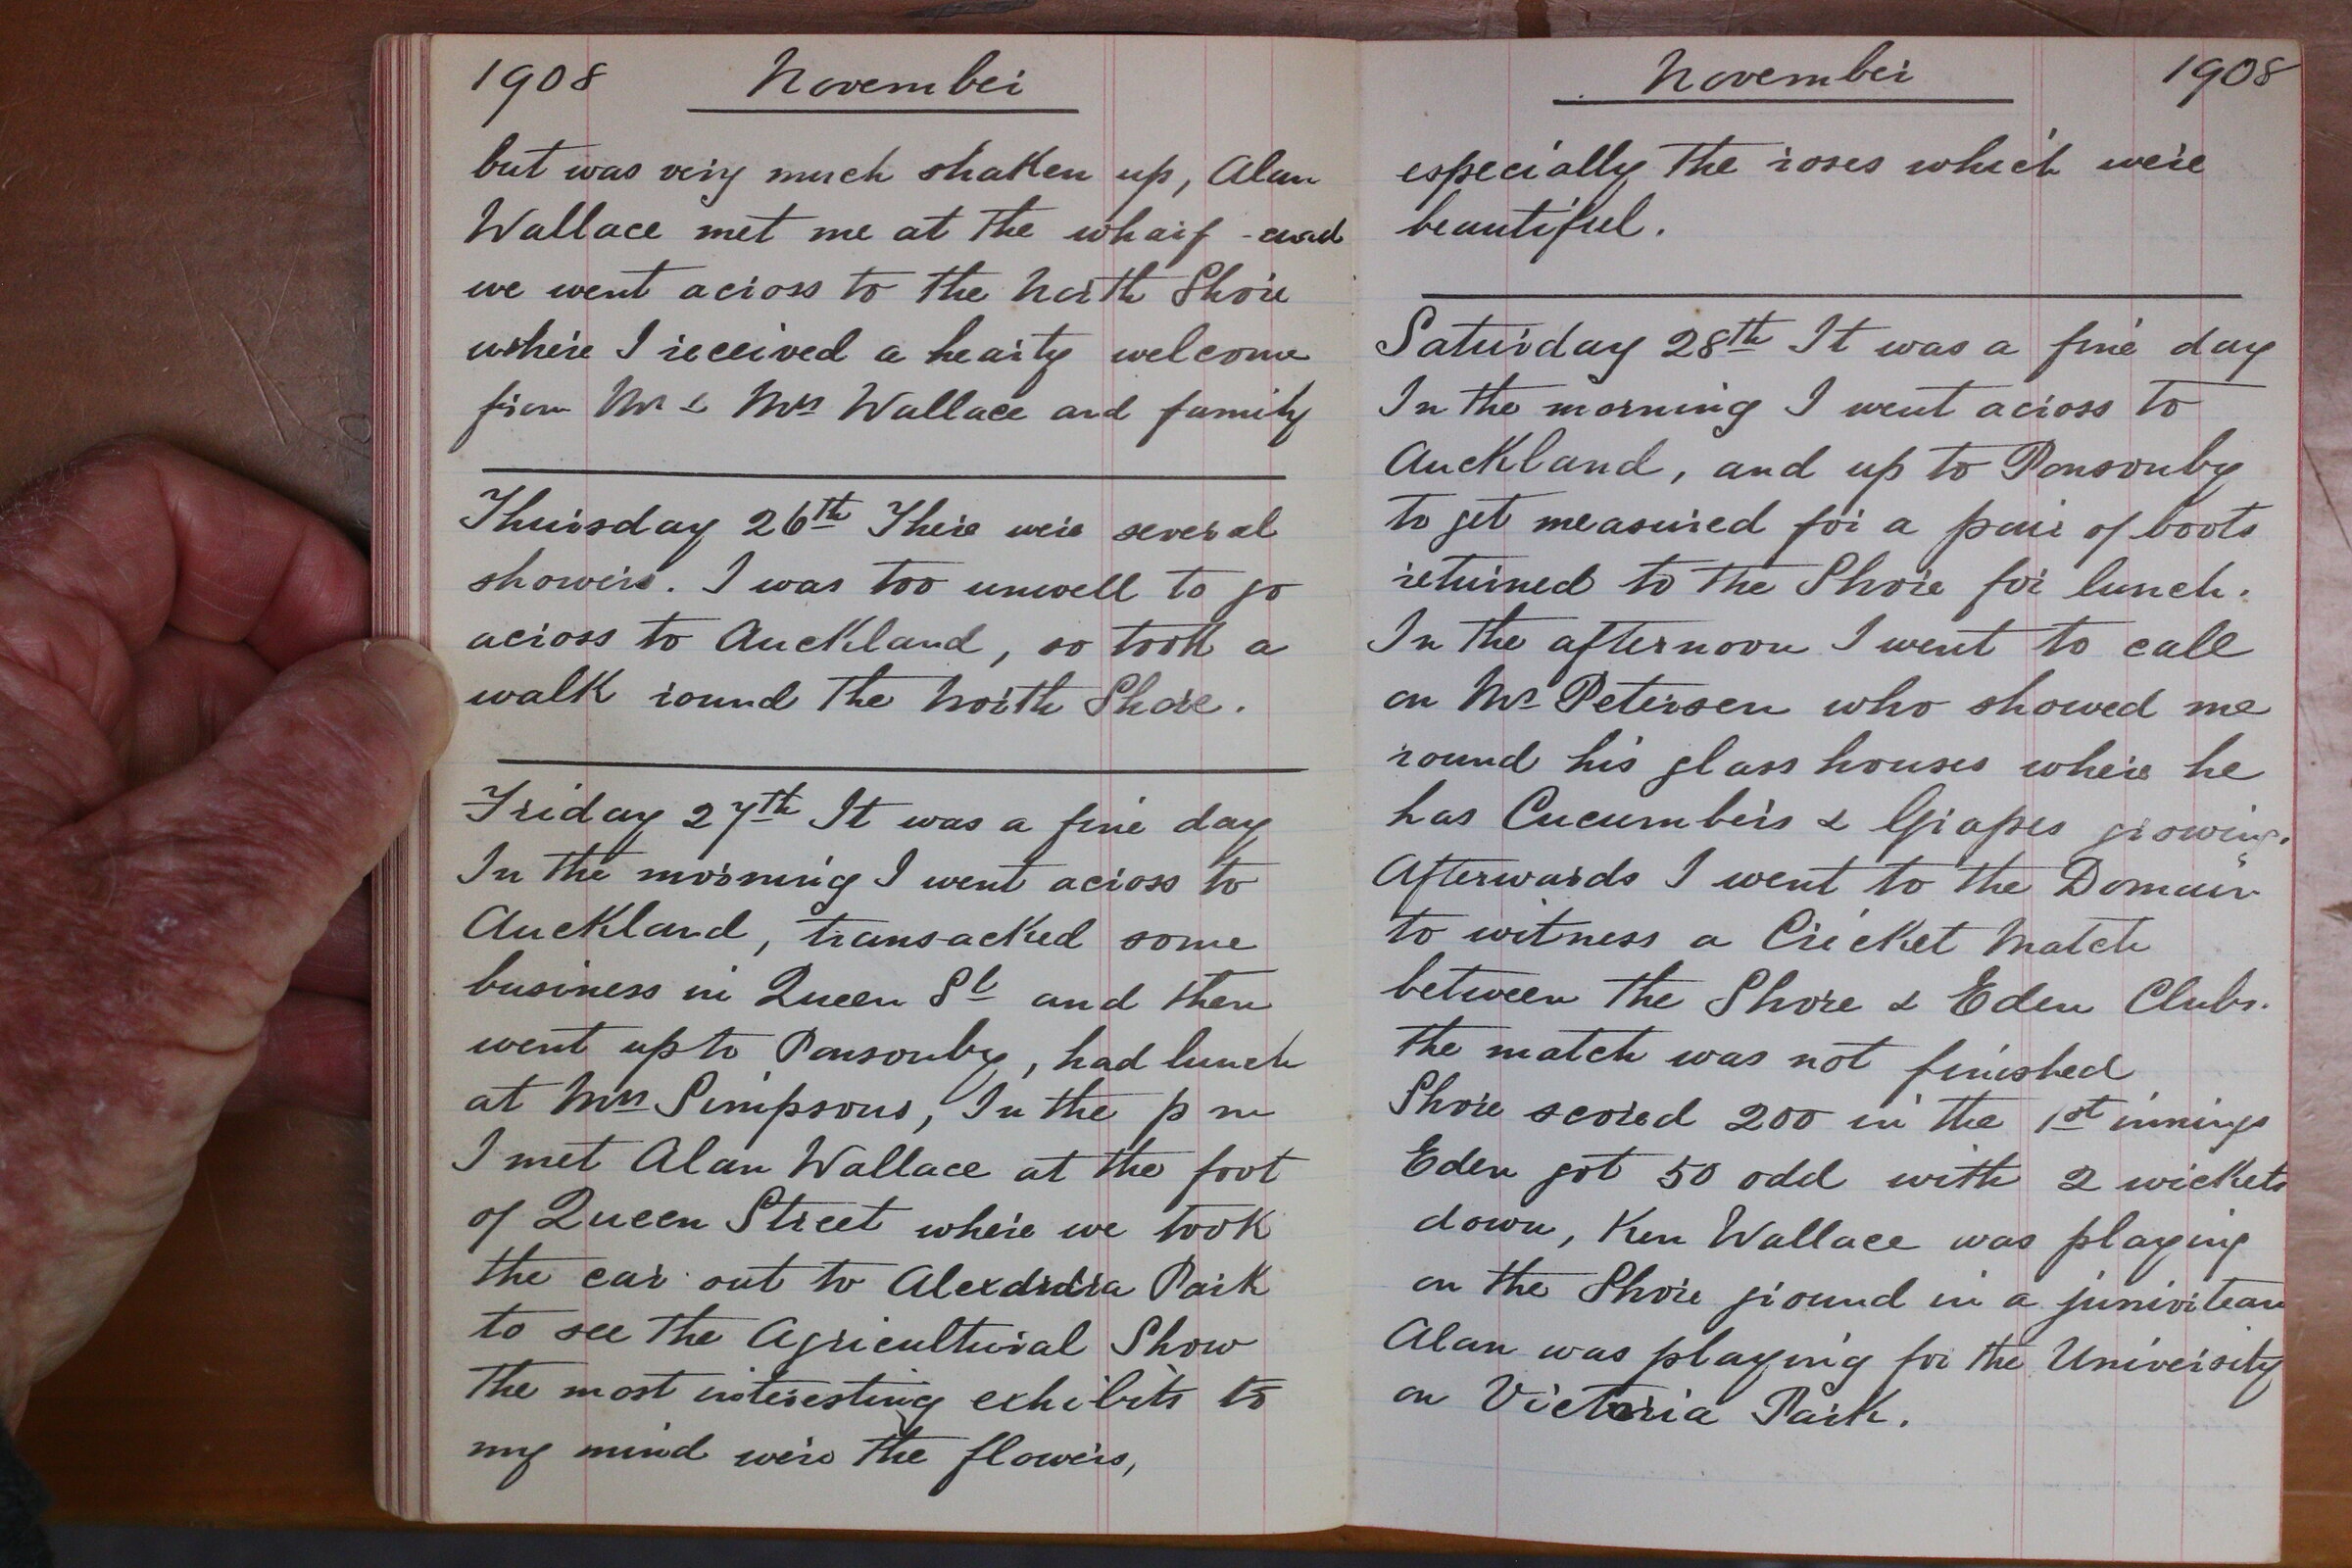 1908 November
but was very much shaken up, Alan
Wallace met me at the wharf and
we went across to the North Shore
where I received a hearty welcome
from Mr & Mrs Wallace and family
Thursday 26th There were several
showers. I was too unwell to go
across to Auckland, so took a
walk round the North Shore.
Friday 27th It was a fine day
In the morning I went across to
Auckland, transacked some
business in Queen St and then
went up to Ponsonby, had lunch
at Mrs Simpsons, In the p m
I met Alan Wallace at the foot
of Queen Street where we took
the car out to Alexdridia Park
to see the Agricultural Show
the most interesting exhibits to
my mind were the flowers,
November 1908
especially the roses which were
beautiful.
Saturday 28th It was a fine day
In the morning I went across to
Auckland, and up to Ponsonby
to get measured for a pair of boots
returned to the Shore for lunch.
In the afternoon I went to call
on Mr Petersen who showed me
round his glass houses where he
has Cucumbers & Grapes growing.
Afterwards I went to the Domain
to witness a Cricket Match
between the Shore & Eden Clubs.
the match was not finished
Shore scored 200 in the 1st innings
Eden got 50 odd with 2 wickets
down, Ken Wallace was playing
on the Shore ground in a junior team
Alan was playing for the University
on Victoria Park.